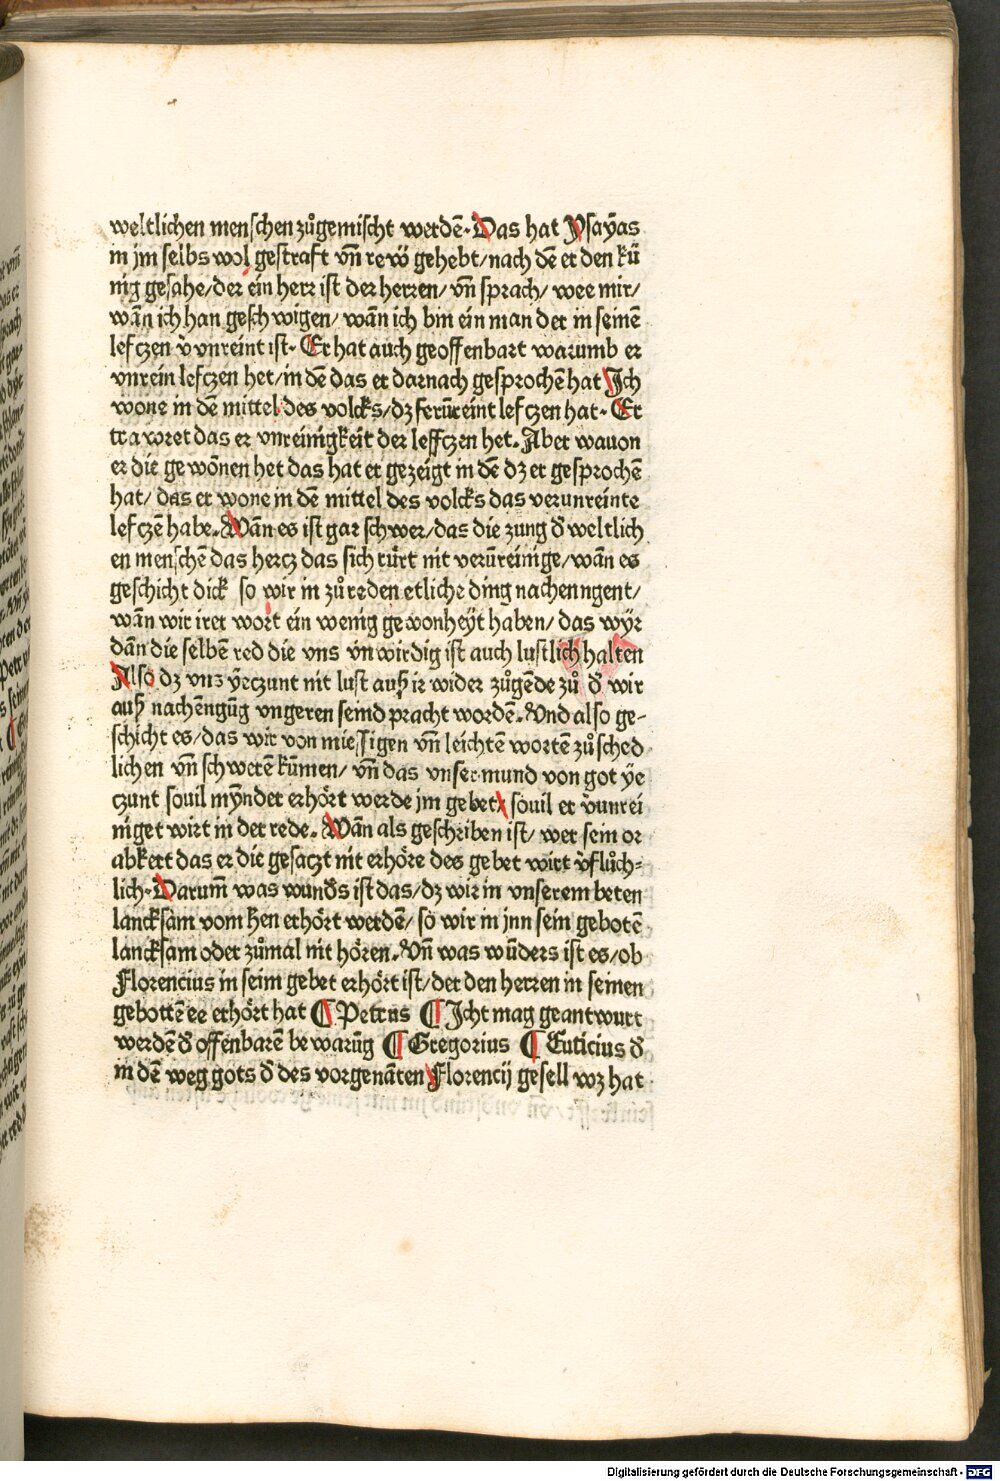 weltlichen menschen zůgemischt werdē. Das hat Ysaÿas
in jm selbs wol gestraft vn̄ rew̋ gehebt/nach dē er den kü
nig gesahe/der ein herr ist der herren/ vn̄ sprach/ wee mir/
wān ich han geschwigen/ wān ich bin ein man der in seinē
lefczen v̓vnreint ist. Er hat auch geoffenbart warumb er
vnrein lefczen het/in dē das er darnach gesprochē hat Ich
wone in dē mittel des volcks/dz ferūreint lefczen hat. Er
trawret das er vnreinigkeit der leffczen het. Aber wauon
er die gewonen het das hat er gezeigt in dē dz er gesprochē
hat/ das er wone in dē mittel des volcks das verunreinte
lefczē habe. Wān es ist gar schwer/das die zung d̓ weltlich
en menschē das hercz das sich rürt nit verūreinige/wān es
geschicht dick so wir in zůreden etliche ding nachenngent/
wān wir irer wort ein wenig gewonheÿt haben/ das wÿr
dān die selbē red die vns vnwirdig ist auch lustlich halten
Also dz vnz ÿeczunt nit lust auß ir wider zůgende zů d̓ wir
auß nachēngūg vngeren seind pracht wordē. Vnd also ge-
schicht es/das wir von miessigen vn̄ leichtē wortē zůsched
lichen vn̄ schwerē kūmen/ vn̄ das vnser mund von got ÿe
czunt souil mÿnder erhört werde jm gebet/ souil er v̓unrei
niget wirt in der rede. Wān als geschriben ist/ wer sein or
abkert das er die gesaczt nit erhöre des gebet wirt v̓flůch-
lich. Darum̄ was wund̓s ist das/dz wir in vnserem beten
lancksam vom h̄en erhört werdē/ so wir in jnn sein gebotē
lancksam oder zůmal nit hören. Vn̄ was wūders ist es/ob
Florencius in seim gebet erhört ist/der den herren in seinen
gebottē ee erhört hat ¶ Petrus ¶ Icht mag geantwurt
werdē d̓ offenbarē bewarūg ¶ Gregorius ¶ Euticius d̓
in dē weg gots d̓ des vorgenāten Florencij gesell wz hat
Digitalisierung gefördert durch die Deutsche Forschungsgemeinschaft - DFG